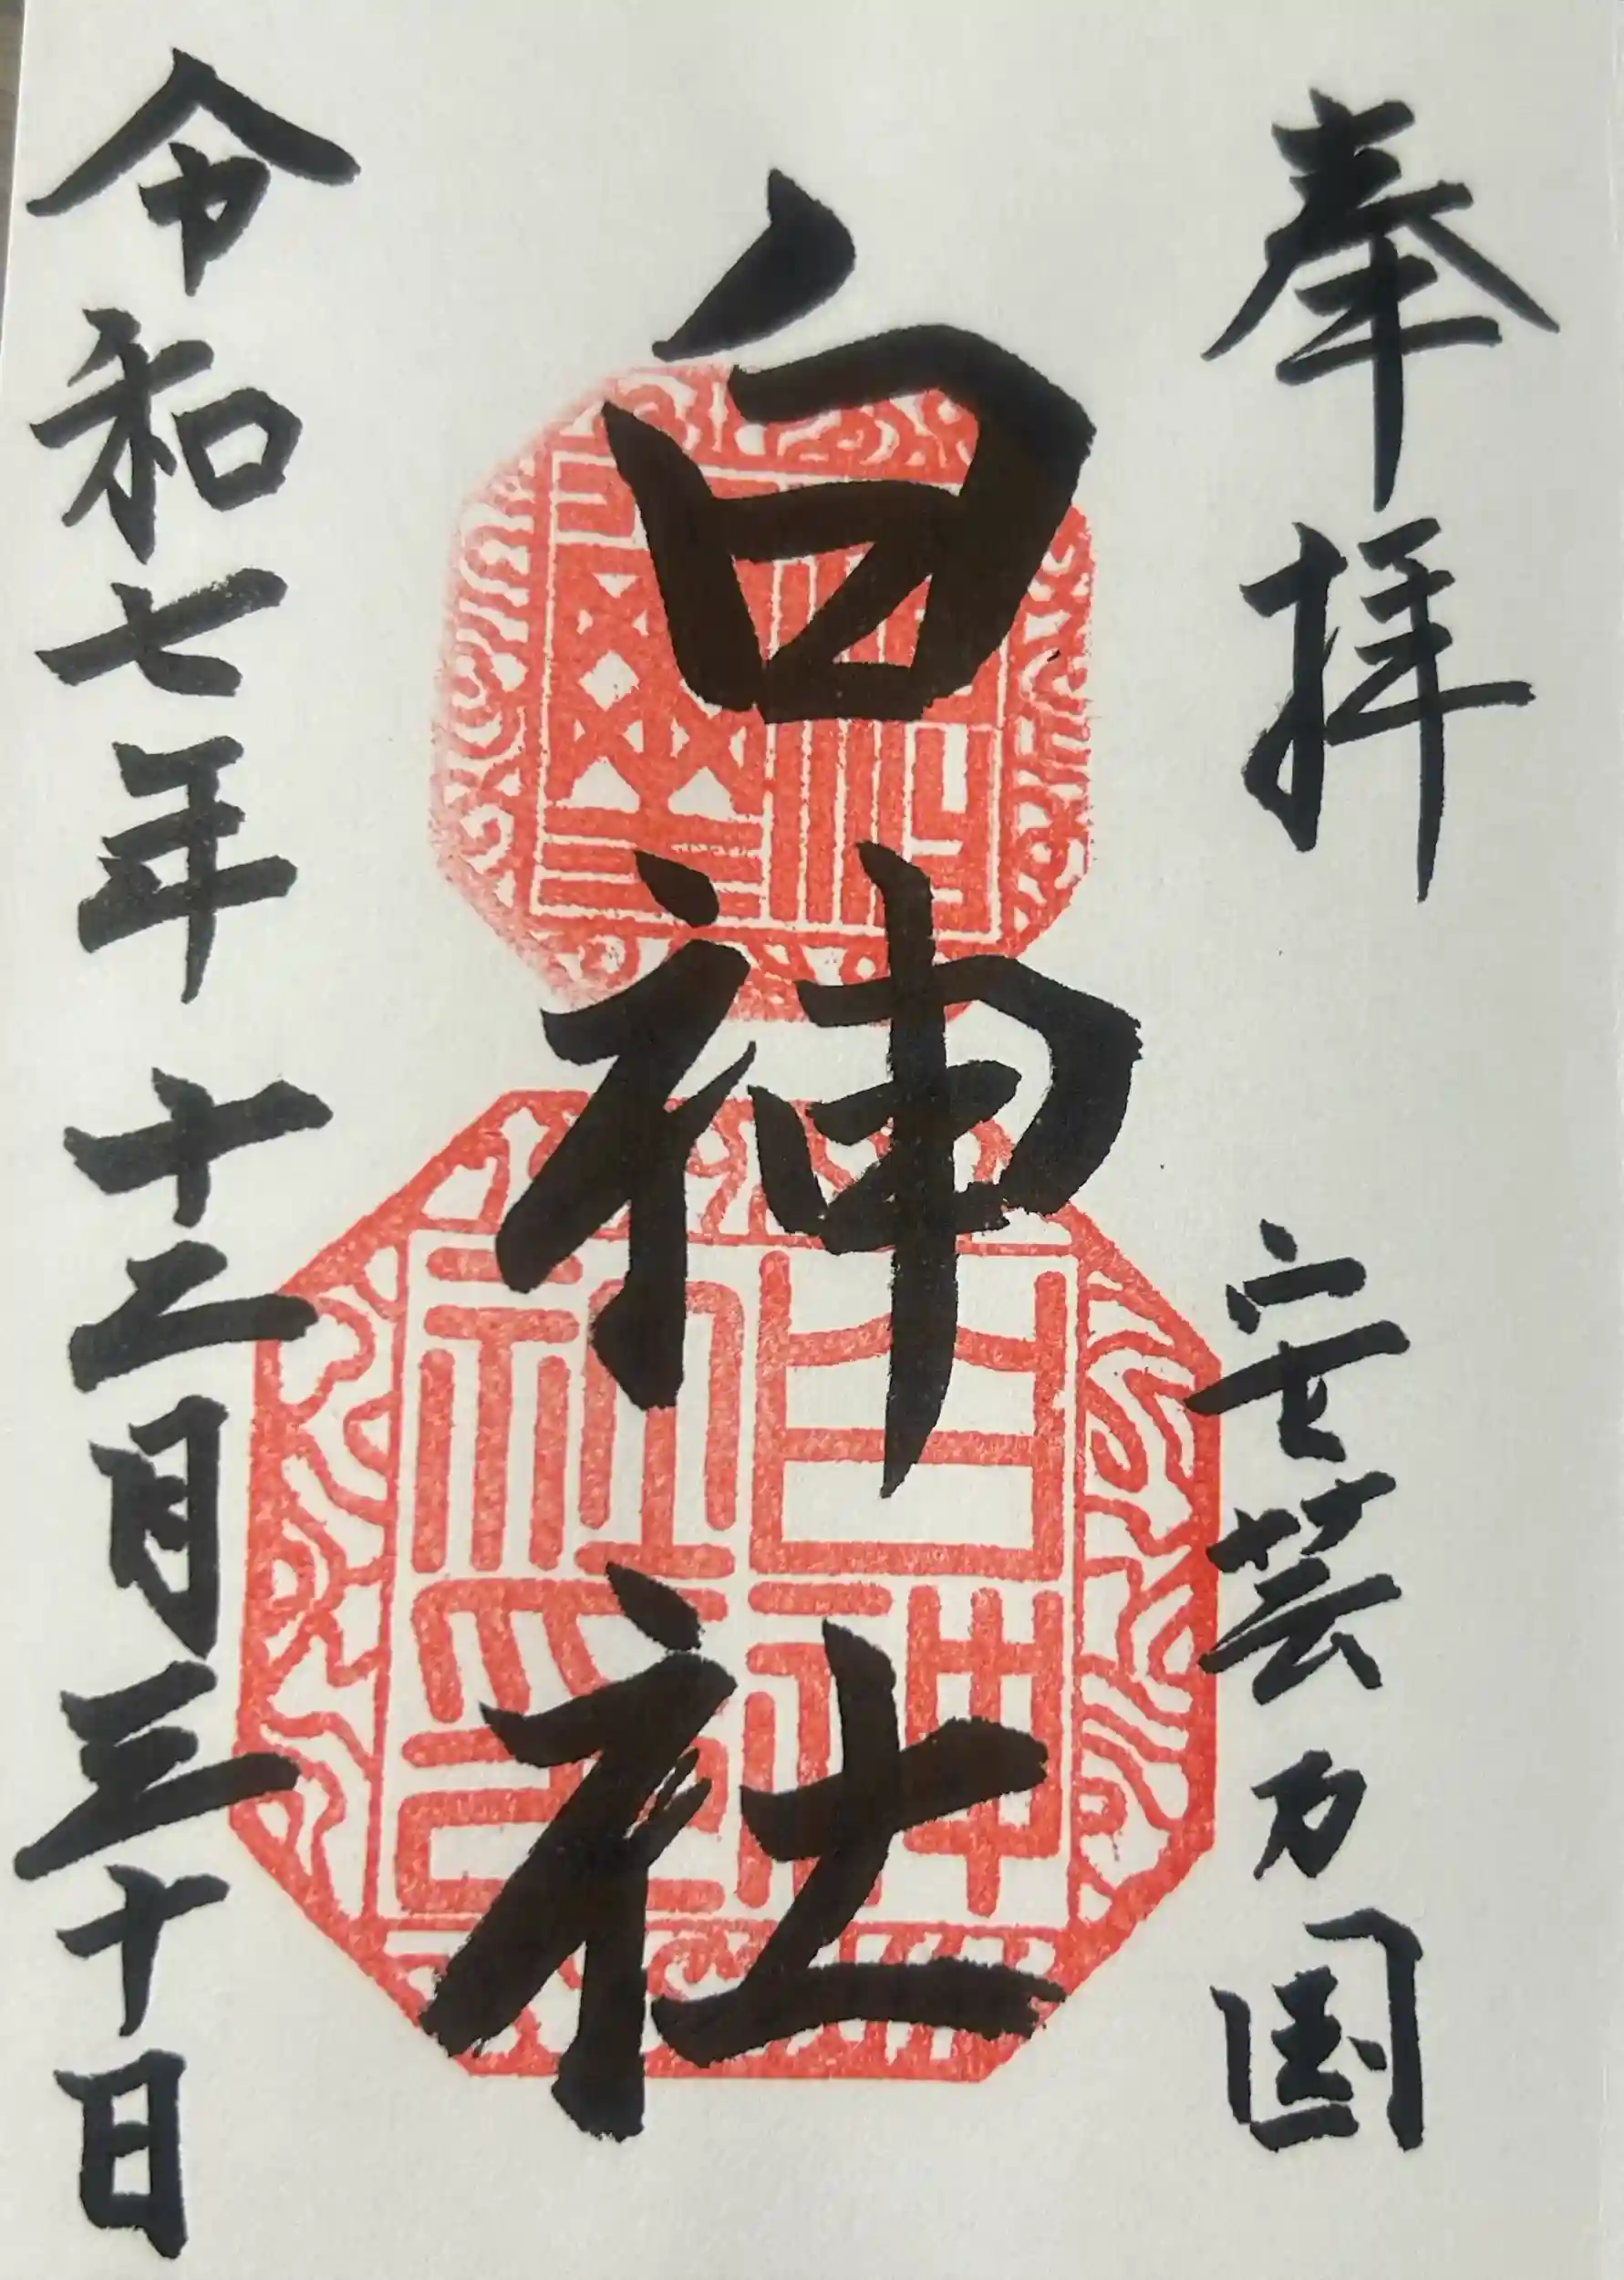 奉拝
安芸乃国
白神社
白神
社印
令和七年十二月三十日